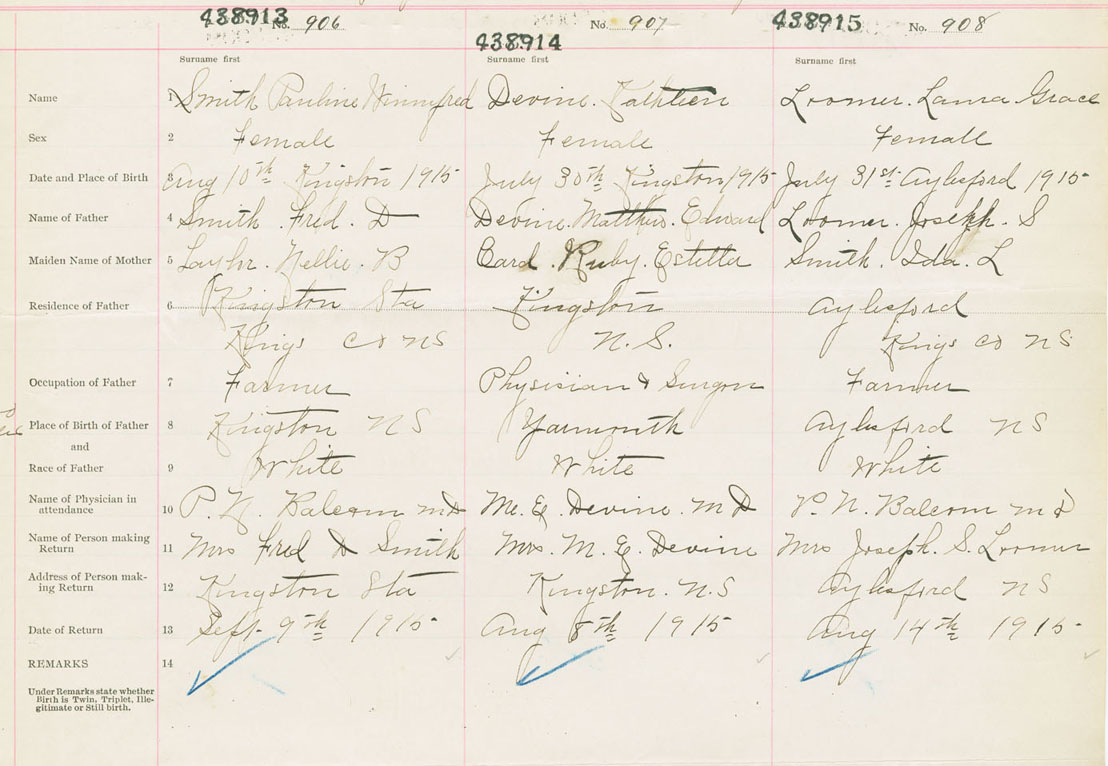 438913 No. 906
438914 No. 907
438915 No. 908
Surname first Surname first Surname first
Name 1 Smith Pauline Winnyfred Devine. Kathleen Loomer. Laura Grace
Sex 2 Female Female Female
Date and Place of Birth 3 Aug 10th Kingston 1915 July 30th Kingston 1915 July 31st Aylesford 1915
Name of Father 4 Smith. Fred. D Devine. Matthew. Edward Loomer. Joseph. S
Maiden Name of Mother 5 Nellie. B Card. Ruby. Estella Smith. Ida. L
Residence of Father 6 Kingston Sta Kingston Aylesford
Kings Co NS N.S. Kings Co NS
Occupation of Father 7 Farmer Physician & Surgon Farmer
Place of Birth of Father 8 Kingston NS Yarmouth Aylesford NS
and
Race of Father 9 White White White
Name of Physician in
attendance 10 P. N. Balcom MD M. E. Devine. MD P. N. Balcom MD
Name of Person making
Return 11 Mrs Fred D Smith Mrs. M. E. Devine Mrs Joseph. S. Loomer
Address of Person mak-
ing Return 12 Kingston Sta Kingston. N.S Aylesford NS
Date of Return 13 Sept. 9th 1915 Aug 8th 1915 Aug 14th 1915
REMARKS 14
Under Remarks state whether
Birth is Twin, Triplet, Ille-
gitimate or Still birth.